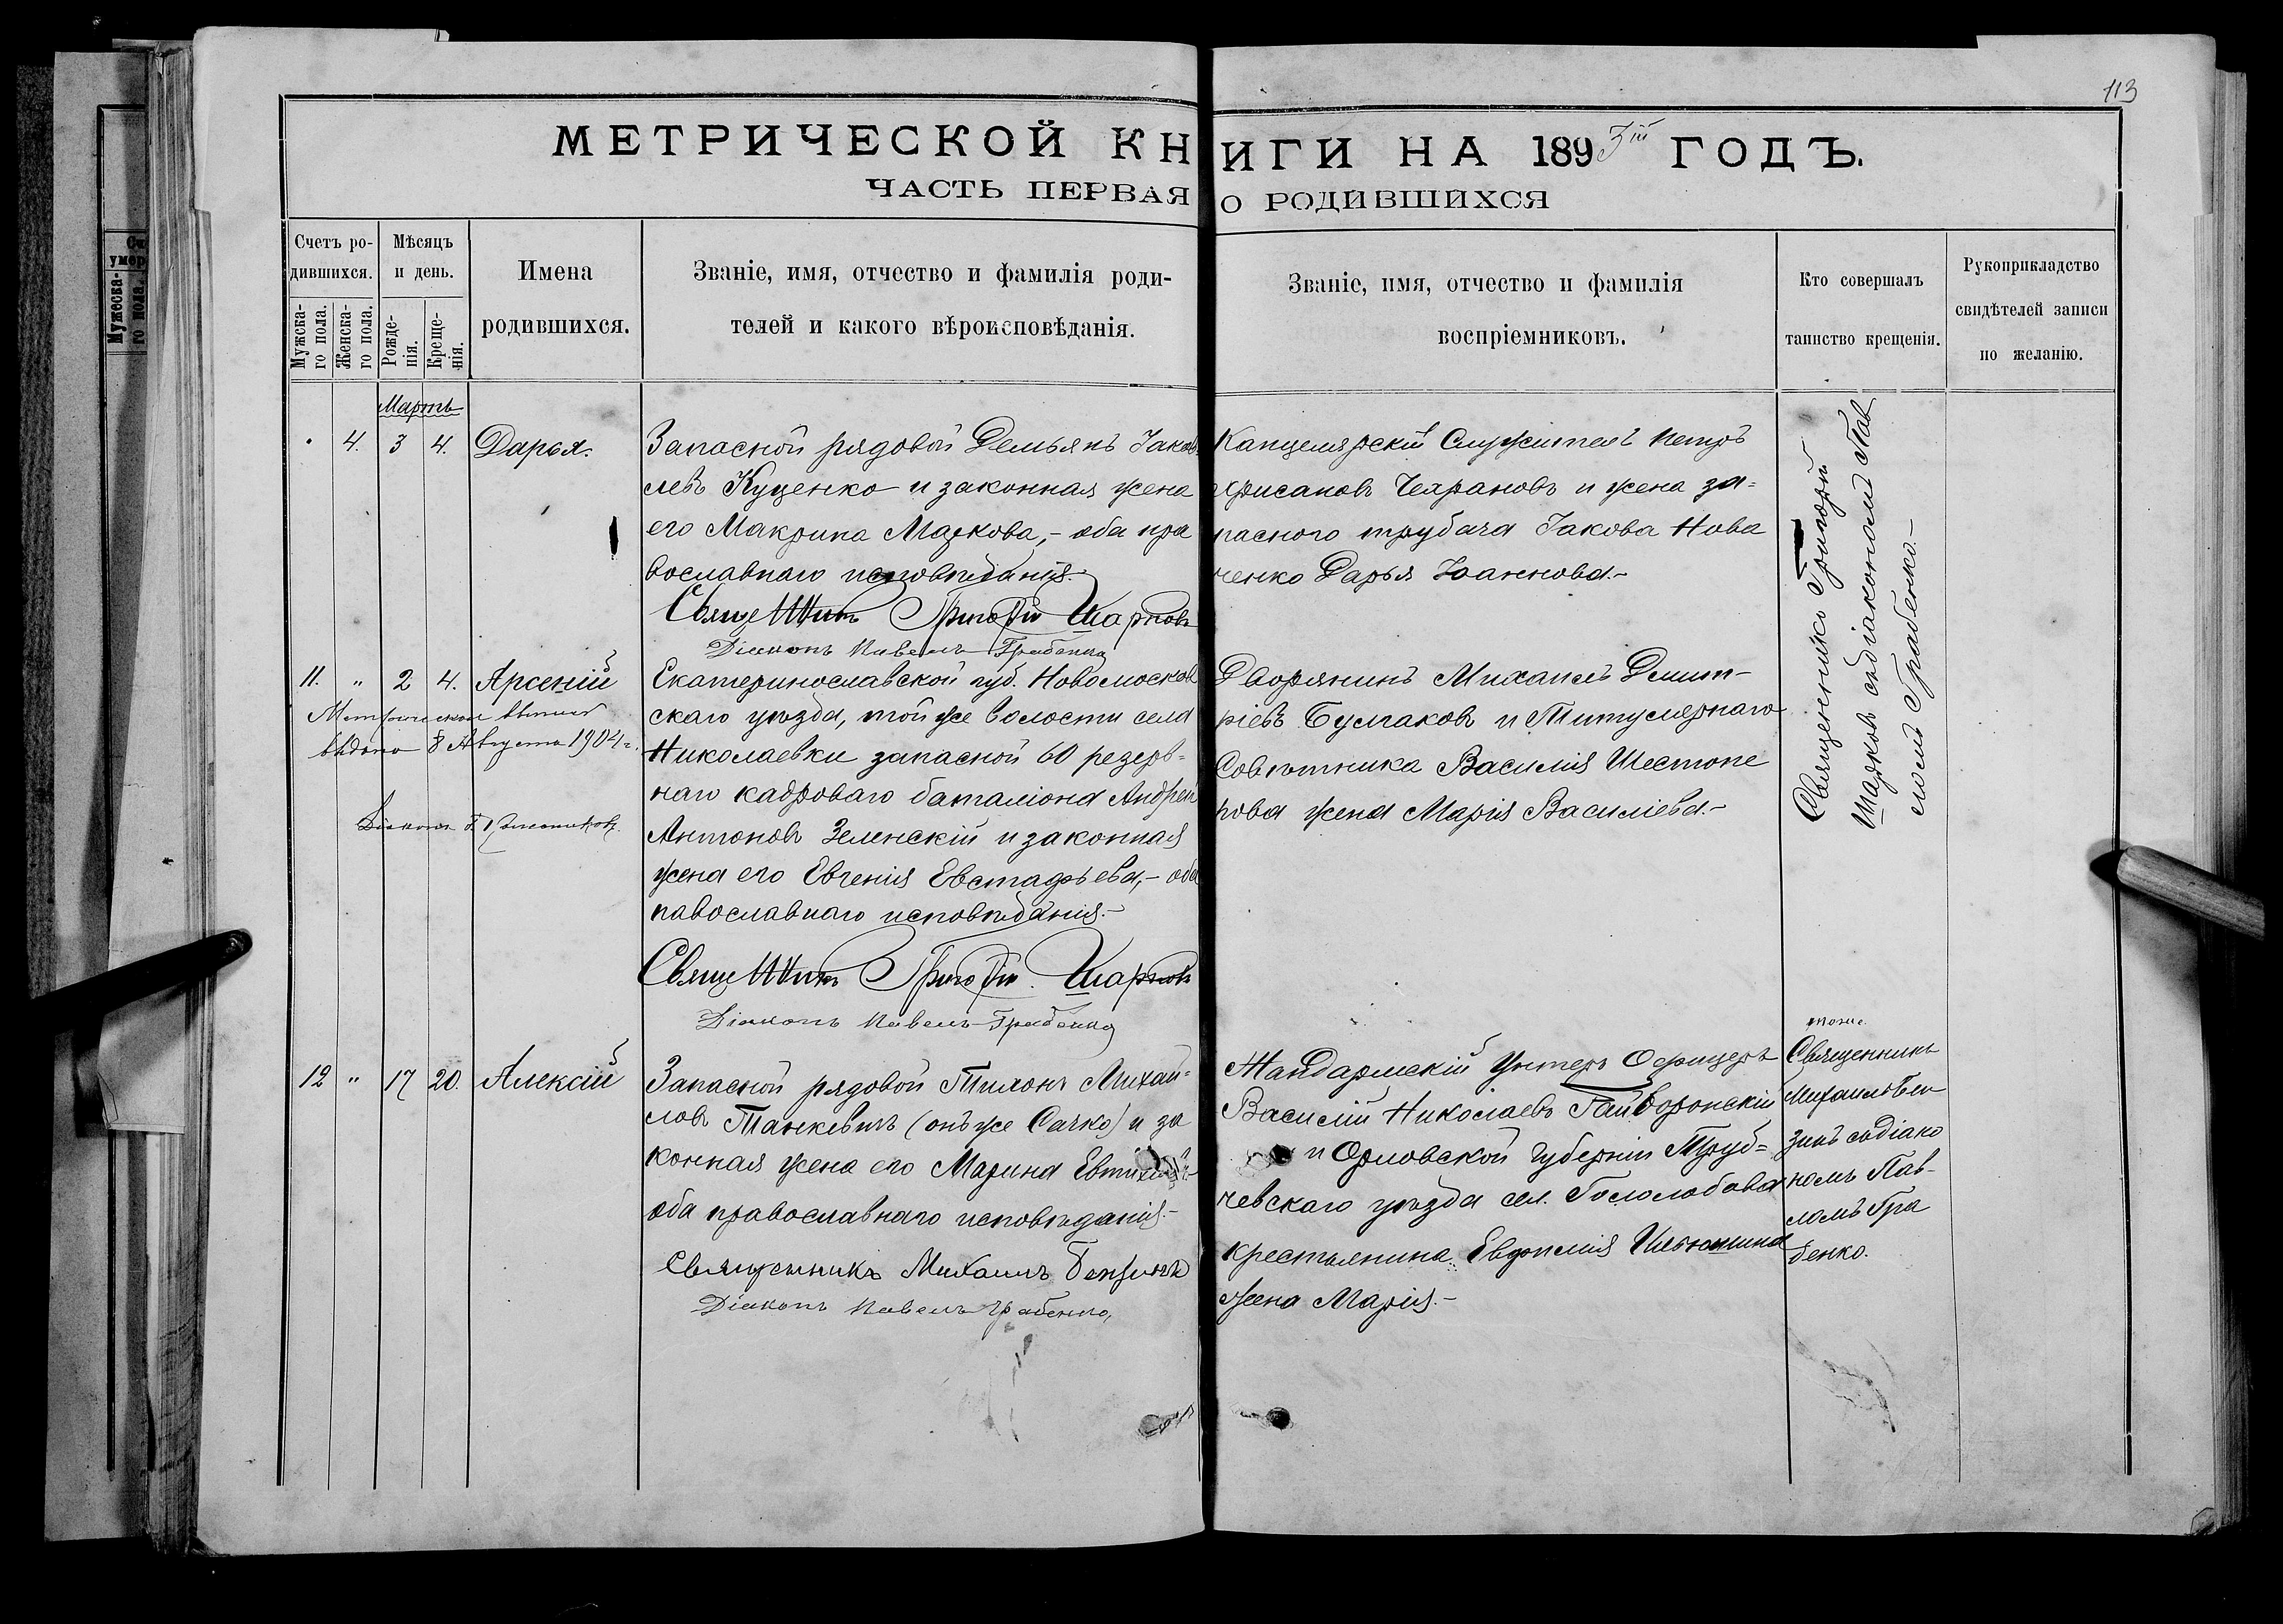 113
МЕТРИЧЕСКОЙ КНИГИ НА 1893ій ГОДЪ.
ЧАСТЬ ПЕРВАЯ О РОДИВШИХСЯ
Счетъ ро-
дившихся.
Мужска-
го пола.
Женска-
го пола.
Мѣсяцъ
и день.
Рожде-
нія.
Креще-
нія.
Имена
родившихся.
Званіе, имя, отчество и фамилія роди-
телей и какого вѣроисповѣданія.
Званіе, имя, отчество и фамилія
воспріемниковъ.
Кто совершалъ
таинство крещенія.
Рукоприкладство
свидѣтелей записи
по желанію.
Мартъ
4. 3 4. Дарья.
Запасной рядовой Демьянъ Іаков
левъ Куценко и законная жена
его Макрина Маркова,- оба пра
вославнаго исповѣданія.-
Священникъ Григорій Шарковъ
Діаконъ Павелъ Грабенко
Канцелярскій Служитель Петръ
Хрисановъ Чеграновъ и жена за=
паснаго трубача Іакова Нова
ченко Дарья Іоаннова.-
Священникъ Григорій
Шарковъ съ діакономъ Пав
ломъ Грабенко.-
11. " 2 4. Арсеній
Метрическая выпись
выдана 8 Августа 1904 г.
Діаконъ
Екатеринославской губ. Новомосков
скаго уѣзда, той же волости села
Николаевки запасной 60 резерв=
наго кадроваго баталіона Андрей
Антоновъ Зеленскій и законная
жена его Евгенія Евстафьева,- оба
павославнаго исповѣданія.-
Священникъ Григорій Шарковъ
Діаконъ Павелъ Грабенко
Дворянинъ Михаилъ Димит-
ріевъ Булгаковъ и Титулярнаго
Совѣтника Василія Шестопе
рова жена Марія Василіева.-
12 " 17 20. Алексій
Запасной рядовой Тихонъ Михаи=
ловъ Танкевичъ (онъ же Сачко) и за
конная жена его Марина
оба православнаго исповѣданія.-
Священникъ Михаилъ Бензинъ
Діаконъ Павелъ Грабенко,
Жандармскій Унтеръ Офицеръ
Василій Николаевъ Гайворонскій
и Орловской губерніи Труб=
чевскаго уѣзда сел. Гололобова
крестьянина Евфимія Ильюшина
жена Марія.-
Священникъ
Михаилъ Бен
зинъ съ діако
номъ Пав-
ломъ Гра
бенко.